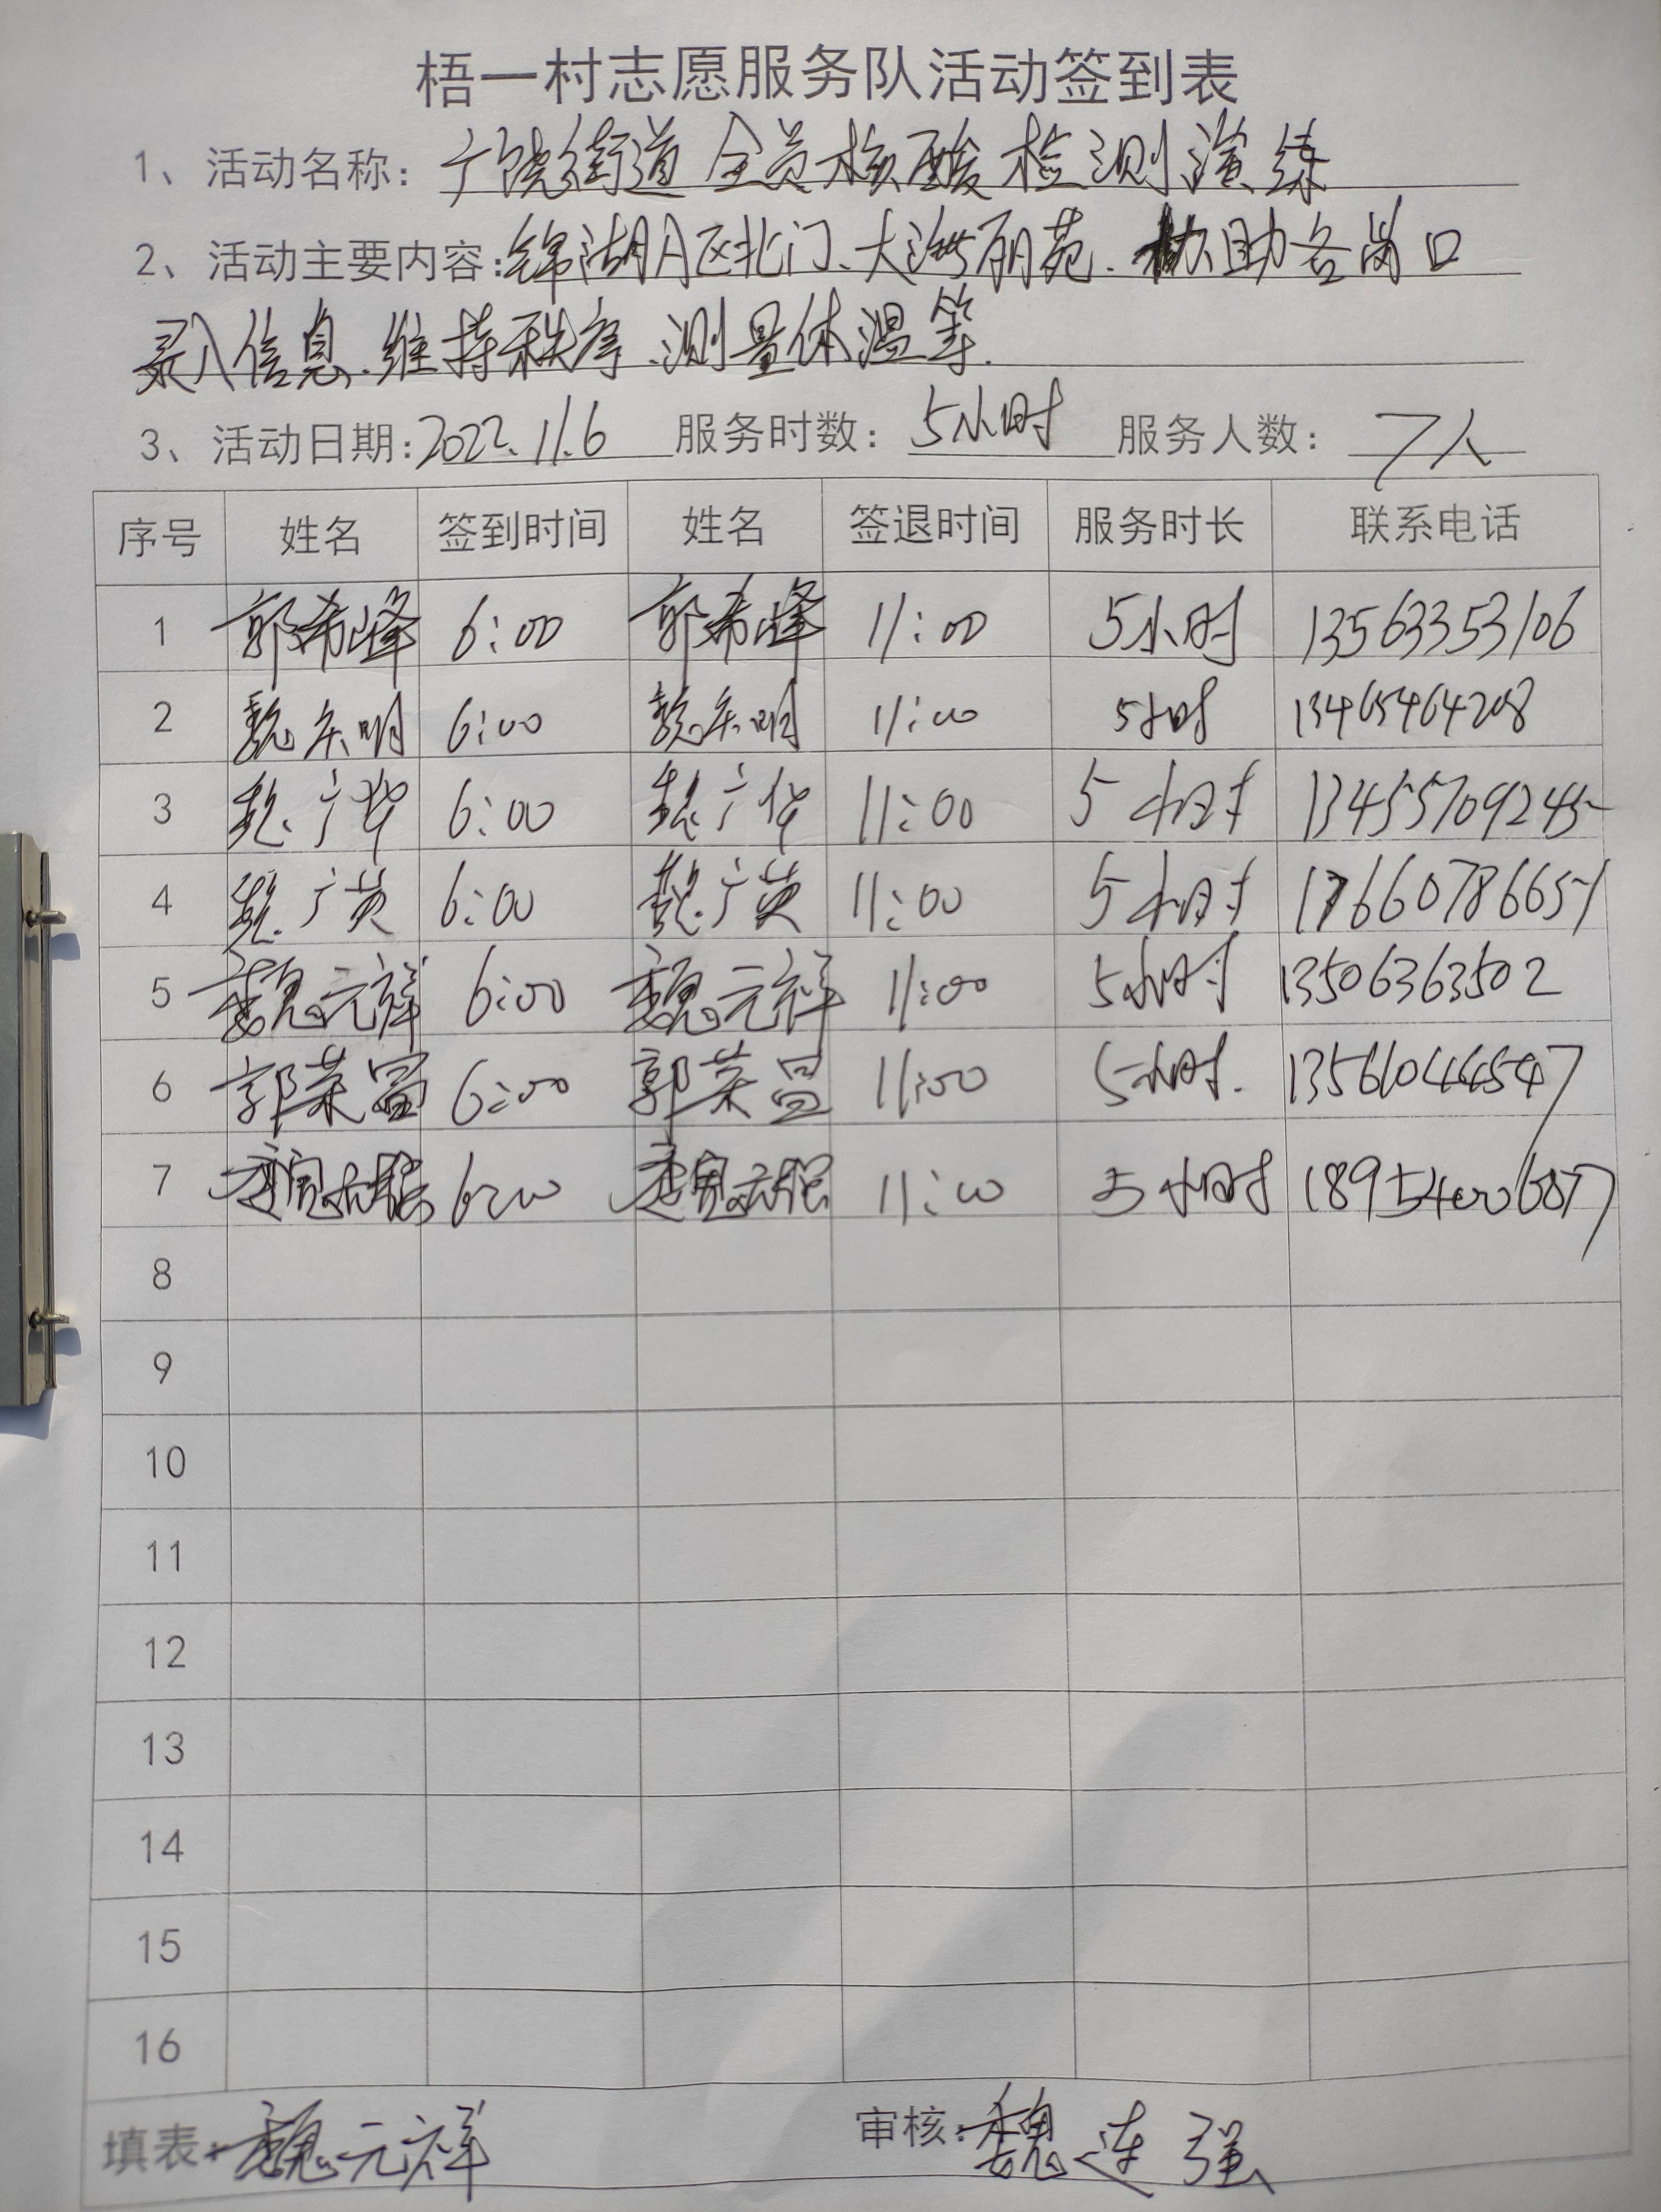 梧一村志愿服务队活动签到表
1、活动名称：广饶街道全员核酸检测演练
2、活动主要内容：锦湖月区北门、大海丽苑、协助各岗口
录入信息、维持秩序、测量体温等.
3、活动日期：2022.11.6 服务时数：5小时 服务人数：7人
序号 姓名 签到时间 姓名 签退时间 服务时长 联系电话
1 郭希峰 6:00 郭希峰 11:00 5小时 13563353106
2 魏 明 6:00 魏 明 11:00 5小时 13465464208
3 魏广华 6:00 魏广华 11:00 5小时 13455709245
4 魏广英 6:00 魏广英 11:00 5小时 17660786651
5 魏元祥 6:00 魏元祥 11:00 5小时 13506363502
6 郭荣 6:00 郭荣 11:00 5小时. 13561044547
7 魏 6:00 魏 11:00 5小时
8
9
10
11
12
13
14
15
16
填表：魏元祥 审核：魏连强